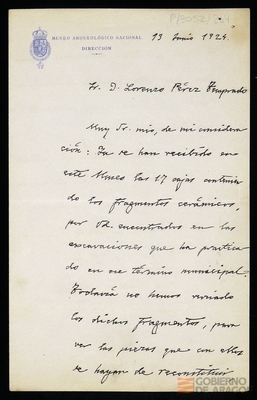 P/3052/
MUSEO ARQUEOLÓGICO NACIONAL
DIRECCIÓN
13 Junio 1924.
Sr. D. Lorenzo Pérez Temprado
Muy Sr. mío, de mi considera
ción: Ya se han recibido en
este Museo las 17 cajas contenien
do los fragmentos cerámicos,
por Vd. encontrados en las
excavaciones que ha practica
do en ese término municipal.
Todavía no hemos revisado
los dichos fragmentos, para
ver las piezas que con ellos
se hayan de reconstituir
GOBIERNO
DE ARAGON